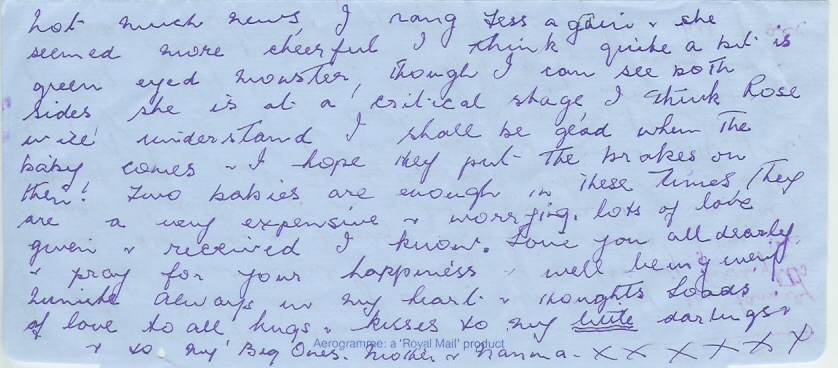 not much news, I rang Tess again & she
seemed more cheerful I think quite a bit is
green eyed monster, though I can see both
sides she is at a critical stage I think Rose
will understand I shall be glad when the
baby comes & I hope they put the brakes on
then! Two babies are enough in these times They
are a very expensive & worrying. lots of love
given & received I know. Love you all dearly
& pray for your happiness & well being every
minute Always in my heart & thoughts Loads
of love to all hugs & kisses to my little darlings &
& to my Big Ones. Mother & Nanna. X X X X X X X
Aerogramme: a 'Royal Mail' product